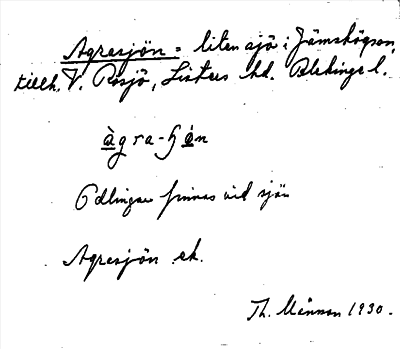 Agresjön = liten sjö i Jämshögssn,
tillh. V. Rosjö, Listers hd. Blekinge l.
àgra-ɧǿn
Odlingar finnas vid sjön
Agresjön ek.
Th. Månsson 1930.